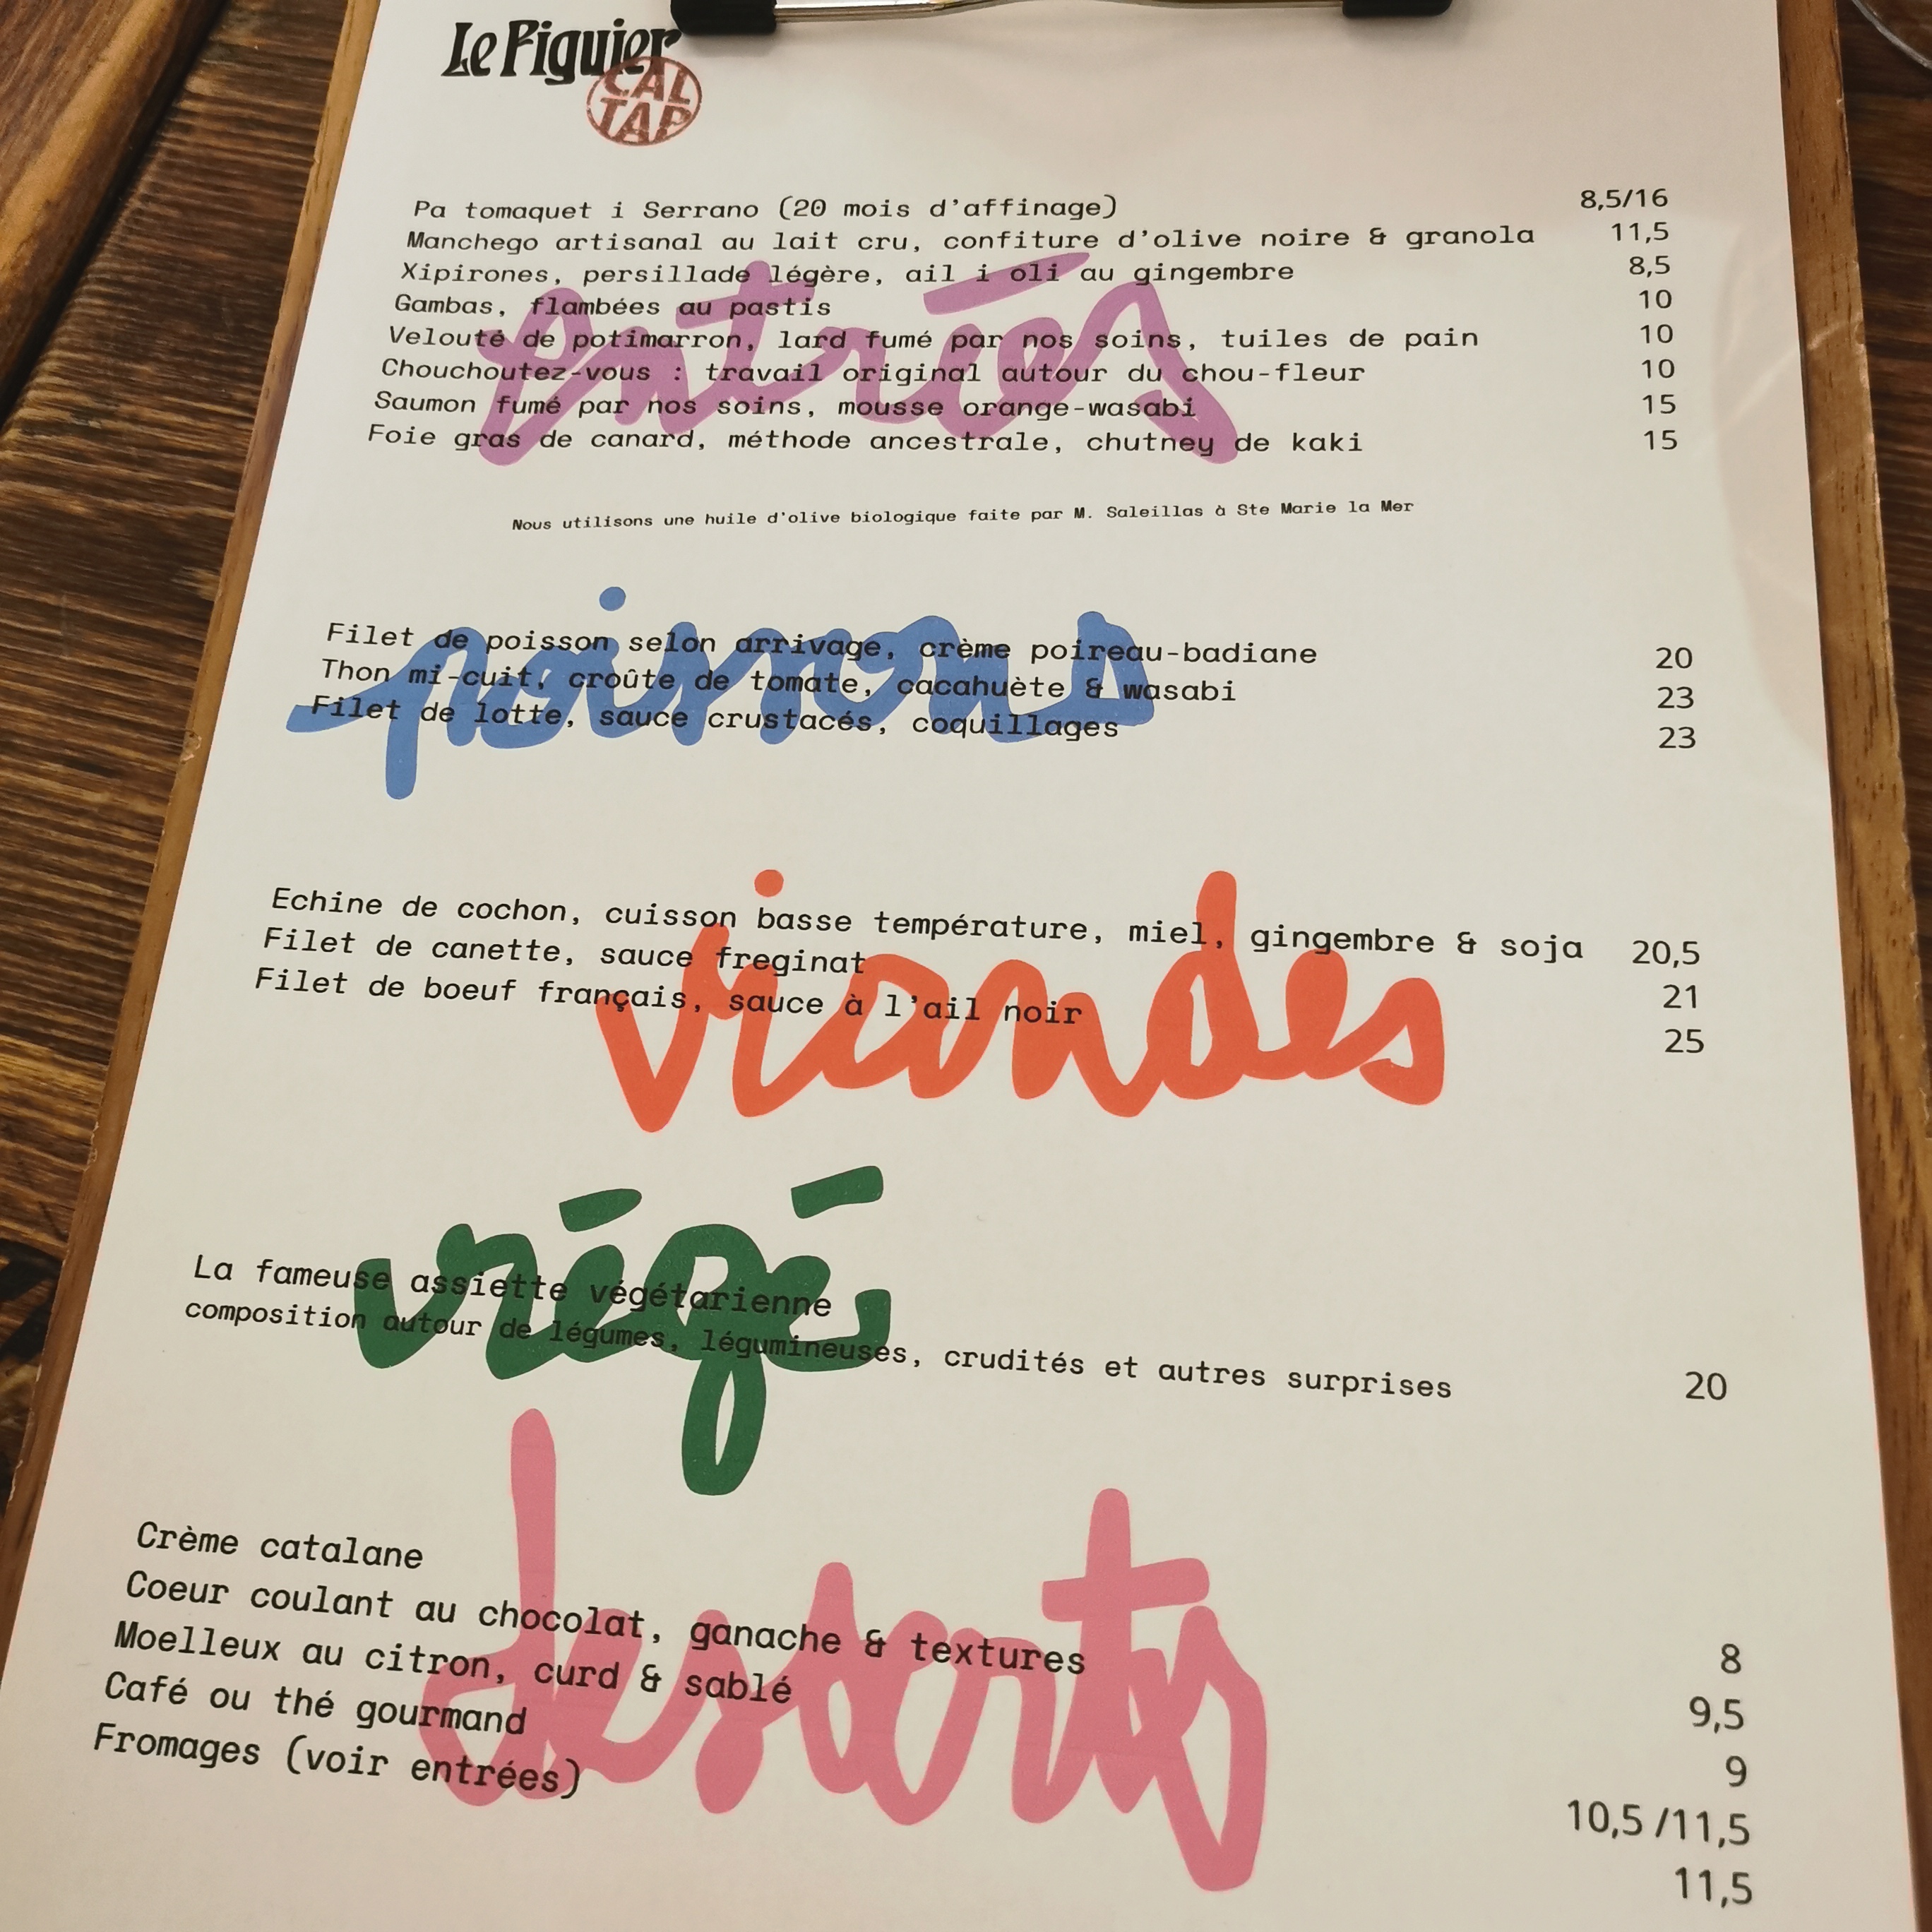 Le Figuier
CAL
TAP
entrées
Pa tomaquet i Serrano (20 mois d'affinage) 8,5/16
Manchego artisanal au lait cru, confiture d'olive noire & granola 11,5
Xipirones, persillade légère, ail i oli au gingembre 8,5
Gambas, flambées au pastis 10
Velouté de potimarron, lard fumé par nos soins, tuiles de pain 10
Chouchoutez-vous : travail original autour du chou-fleur 10
Saumon fumé par nos soins, mousse orange-wasabi 15
Foie gras de canard, méthode ancestrale, chutney de kaki 15
Nous utilisons une huile d'olive biologique faite par M. Saleillas à Ste Marie la Mer
poissons
Filet de poisson selon arrivage, crème poireau-badiane 20
Thon mi-cuit, croûte de tomate, cacahuète & wasabi 23
Filet de lotte, sauce crustacés, coquillages 23
viandes
Echine de cochon, cuisson basse température, miel, gingembre & soja 20,5
Filet de canette, sauce freginat 21
Filet de boeuf français, sauce à l'ail noir 25
végé
La fameuse assiette végétarienne
composition autour de légumes, légumineuses, crudités et autres surprises 20
desserts
Crème catalane 8
Coeur coulant au chocolat, ganache & textures 9,5
Moelleux au citron, curd & sablé 9
Café ou thé gourmand 10,5 /11,5
Fromages (voir entrées) 11,5